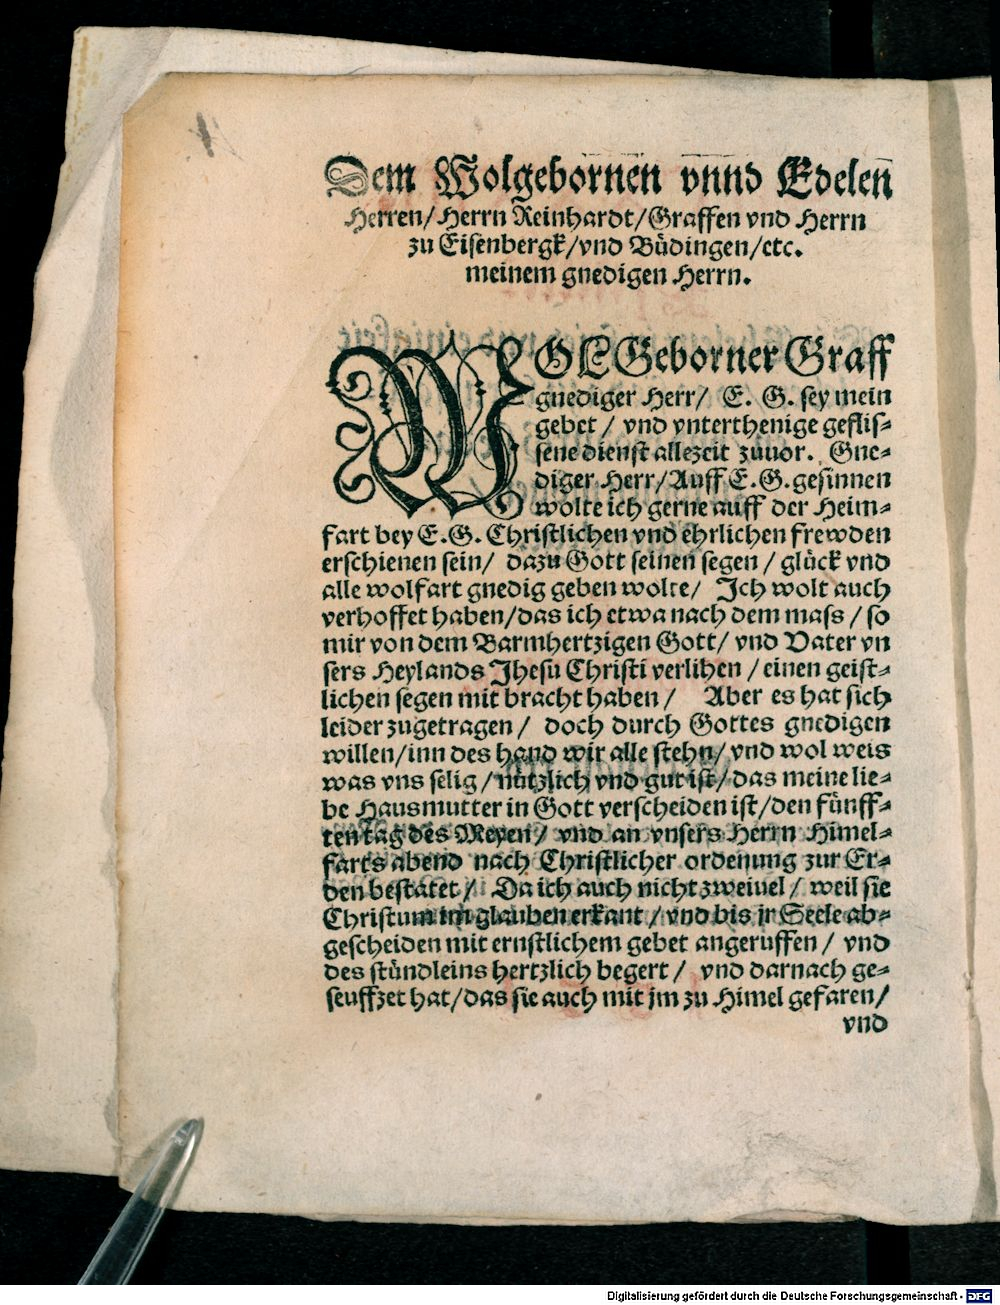 Dem Wolgebornen vnnd Edelen
Herren/ Herrn Reinhardt/Graffen vnd Herrn
zu Eisenbergk/vnd Büdingen/etc.
meinem gnedigen Herrn.
WOLGeborner Graff
gnediger Herr/ E. G. sey mein
gebet / vnd vnterthenige geflis-
sene dienst allezeit zuuor. Gne-
diger Herr/Auff E.G. gesinnen
wolte ich gerne auff der Heim-
fart bey E.G. Christlichen vnd ehrlichen frewden
erschienen sein/ dazu Gott seinen segen / glück vnd
alle wolfart gnedig geben wolte/ Ich wolt auch
verhoffet haben/das ich etwa nach dem mass / so
mir von dem Barmhertzigen Gott/ vnd Vater vn
sers Heylands Jhesu Christi verlihen / einen geist-
lichen segen mit bracht haben / Aber es hat sich
leider zugetragen / doch durch Gottes gnedigen
willen/inn des hand wir alle stehn/ vnd wol weis
was vns selig / nützlich vnd gut ist/ das meine lie-
be Hausmutter in Gott verscheiden ist/den fünff-
ten tag des Meyen/ vnd an vnsers Herrn Himel-
farts abend nach Christlicher ordenung zur Er-
den bestatet / Da ich auch nicht zweiuel / weil sie
Christum im glauben erkant / vnd bis jr Seele ab-
gescheiden mit ernstlichem gebet angeruffen / vnd
des stündleins hertzlich begert / vnd darnach ge-
seuffzet hat/das sie auch mit jm zu Himel gefaren/
vnd
Digitalisierung gefördert durch die Deutsche Forschungsgemeinschaft - DFG